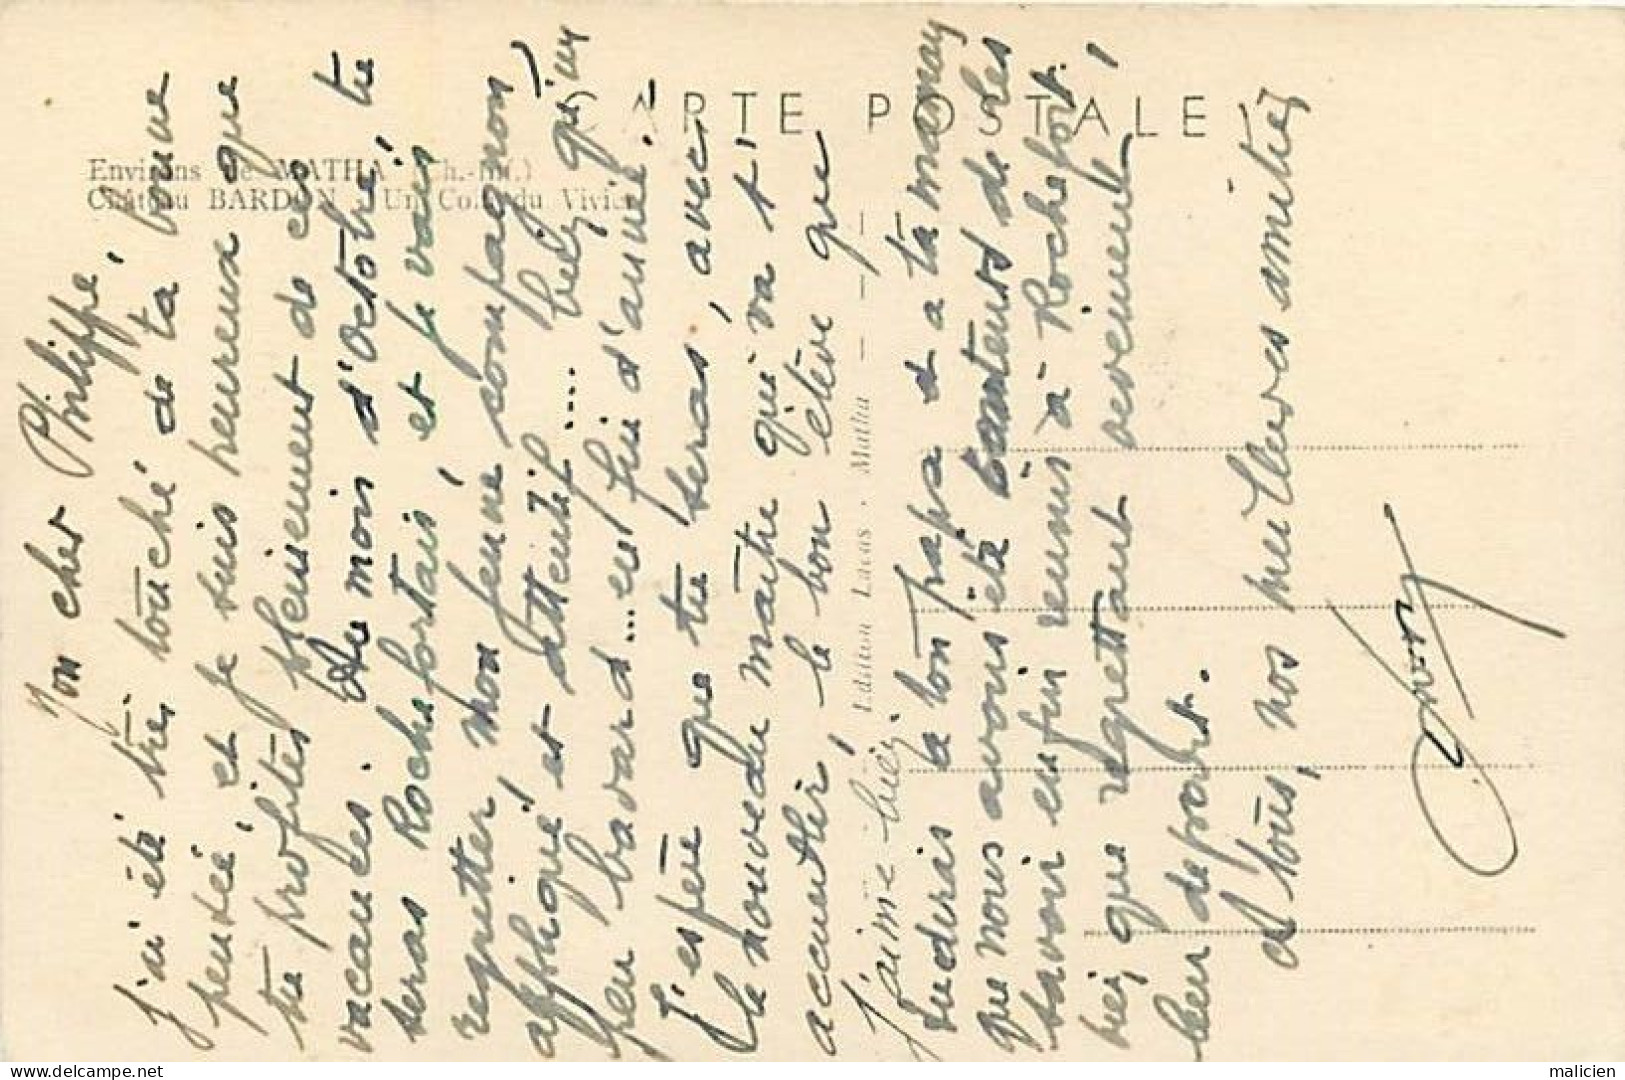 CARTE POSTALE
Environs de MATHA (Ch.-Inf.)
Château BARDON - Un Coin du Vivier
Edition Lucas - Matha
Mon cher Philippe,
J'ai été très touché de ta bonne
pensée, et je suis heureux que
tu profites pleinement de ces
vacances. Au mois d'Octobre, tu
seras Rochefortais, et je vais
regretter, mon jeune compagnon,
appliqué et attentif.... bien qu'un
peu bavard... en fin d'année.
J'espère que tu seras, avec
le nouveau maître qui va t'
accueillir, le bon élève que
j'aime bien
tu diras à ton papa et à ta maman
que nous avons été contents de les
savoir enfin réunis à Rochefort,
bien que regrettant vivement
leur départ.
A tous, nos meilleures amitiés